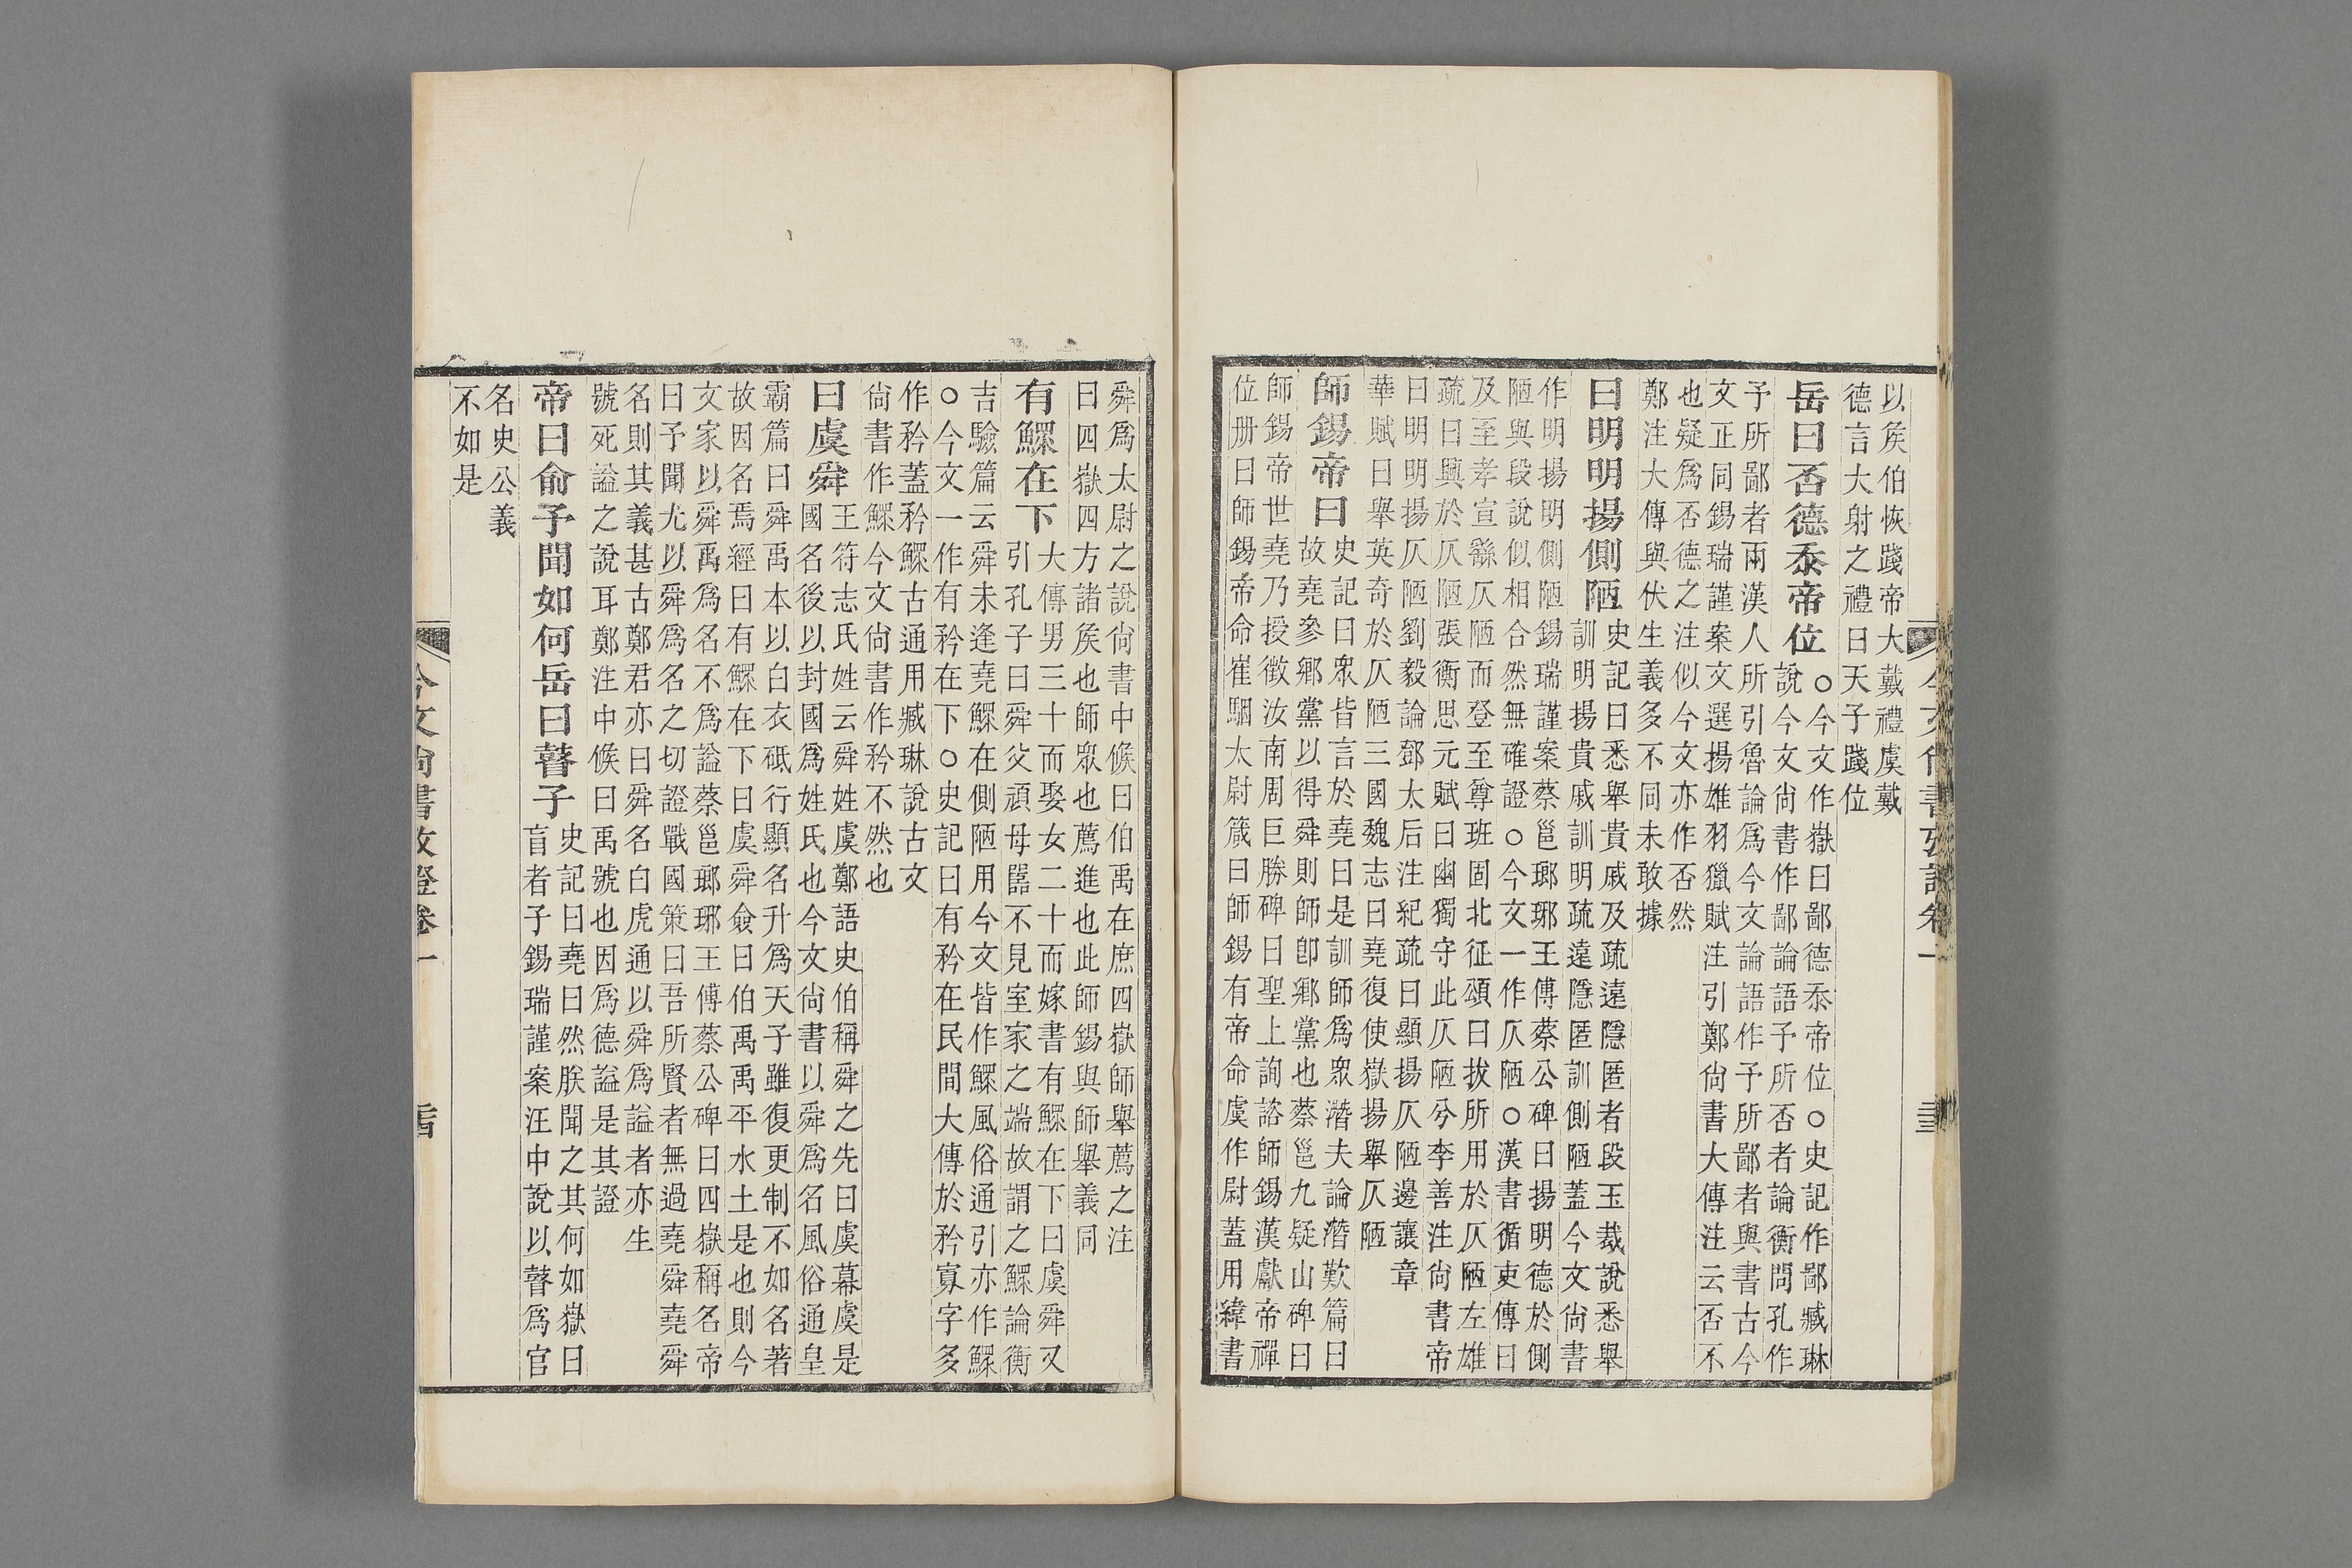 以矦伯恢踐帝大戴禮虞戴
德言大射之禮曰天子踐位
岳曰否德忝帝位
○今文作嶽曰鄙德忝帝位○史記作鄙臧琳
說今文尙書作鄙論語予所否者論衡問孔作
予所鄙者兩漢人所引魯論爲今文論語作予所鄙者與書古今
文正同錫瑞謹案文選揚雄羽獵賦注引鄭尙書大傳注云否不
也疑爲否德之注似今文亦作否然
鄭注大傳與伏生義多不同未敢據
曰明明揚側陋
史記曰悉舉貴戚及疏遠隱匿者段玉裁說悉舉
訓明揚貴戚訓明疏遠隱匿訓側陋蓋今文尙書
作明揚明側陋錫瑞謹案蔡邕瑯琊王傅蔡公碑曰揚明德於側
陋與段說似相合然無確證○今文一作仄陋○漢書循吏傳曰
及至孝宣繇仄陋而登至尊班固北征頌曰拔所用於仄陋左雄
疏曰興於仄陋張衡思元賦曰幽獨守此仄陋兮李善注尙書帝
曰明明揚仄陋劉毅論鄧太后注紀疏曰顯揚仄陋邊讓章
華賦曰舉英奇於仄陋三國魏志曰堯復使嶽揚舉仄陋
師錫帝曰
史記曰眾皆言於堯曰是訓師爲眾潛夫論潛歎篇曰
故堯參鄉黨以得舜則師卽鄉黨也蔡邕九疑山碑曰
師錫帝世堯乃授徵汝南周巨勝碑曰聖上詢諮師錫漢獻帝禪
位册曰師錫帝命崔駰太尉箴曰師錫有帝命虞作尉蓋用緯書
舜爲太尉之說尙書中候曰伯禹在庶四嶽師舉薦之注
曰四嶽四方諸矦也師眾也薦進也此師錫與師舉義同
有鰥在下
大傳男三十而娶女二十而嫁書有鰥在下曰虞舜又
引孔子曰舜父頑母嚚不見室家之端故謂之鰥論衡
吉驗篇云舜未逢堯鰥在側陋用今文皆作鰥風俗通引亦作鰥
○今文一作有矜在下○史記曰有矜在民間大傳於矜寡字多
作矜蓋矜鰥古通用臧琳說古文
尙書作鰥今文尙書作矜不然也
曰虞舜
王符志氏姓云舜姓虞鄭語史伯稱舜之先曰虞幕虞是
國名後以封國爲姓氏也今文尙書以舜爲名風俗通皇
霸篇曰舜禹本以白衣砥行顯名升爲天子雖復更制不如名著
故因名焉經曰有鰥在下曰虞舜僉曰伯禹禹平水土是也則今
文家以舜禹爲名不爲謚蔡邕瑯琊王傅蔡公碑曰四嶽稱名帝
曰予聞尤以舜爲名之切證戰國策曰吾所賢者無過堯舜堯舜
名則其義甚古鄭君亦曰舜名白虎通以舜爲謚者亦生
號死謚之說耳鄭注中候曰禹號也因爲德謚是其證
帝曰俞予聞如何岳曰瞽子
史記曰堯曰然朕聞之其何如嶽曰
盲者子錫瑞謹案汪中說以瞽爲官
名史公義
不如是
今文尙書攷證卷一